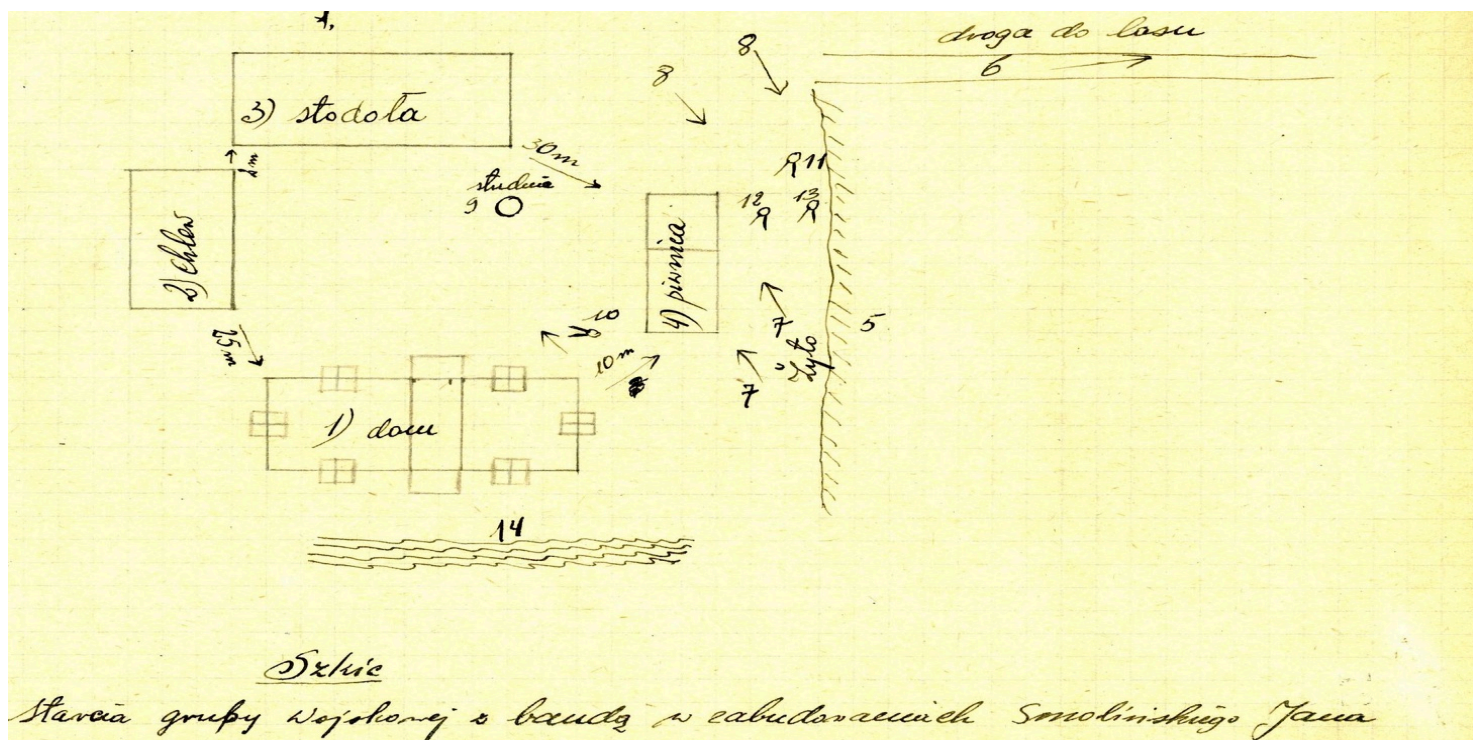 1.
droga do lasu
8
8
6
3) stodoła
30 m
2m
studnia
9
11
12
13
2) chlew
4) piwnica
25m
10
7
5
żyto
10 m
7
1) dom
14
Szkic
starcia grupy wojskowej z bandą w zabudowaniach Smolińskiego Jana